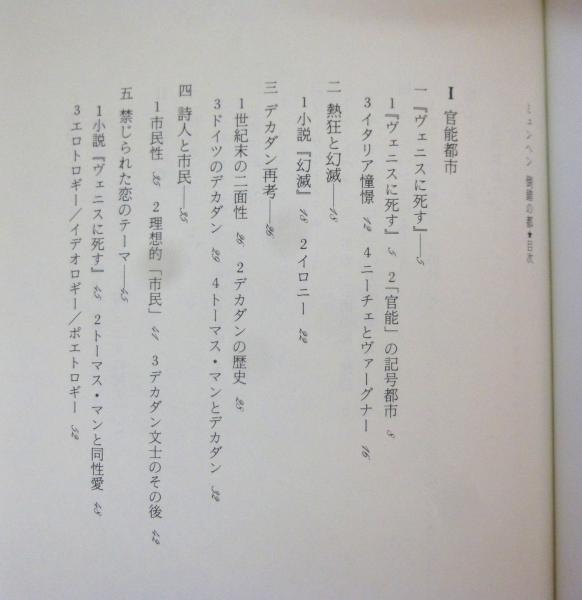 ミュンヘン 倒錯の都★目次
Ⅰ 官能都市
一 『ヴェニスに死す』——5
1『ヴェニスに死す』 5 2「官能」の記号都市 8
3イタリア憧憬 12 4ニーチェとヴァーグナー 16
二 熱狂と幻滅——18
1小説『幻滅』 18 2イロニー 22
三 デカダン再考——26
1世紀末の二面性 26 2デカダンの歴史 25
3ドイツのデカダン 29 4トーマス・マンとデカダン 32
四 詩人と市民——35
1市民性 35 2理想的「市民」 41 3デカダン文士のその後 42
五 禁じられた恋のテーマ——45
1小説『ヴェニスに死す』 45 2トーマス・マンと同性愛 48
3エロトロギー/イデオロギー/ポエトロギー 52